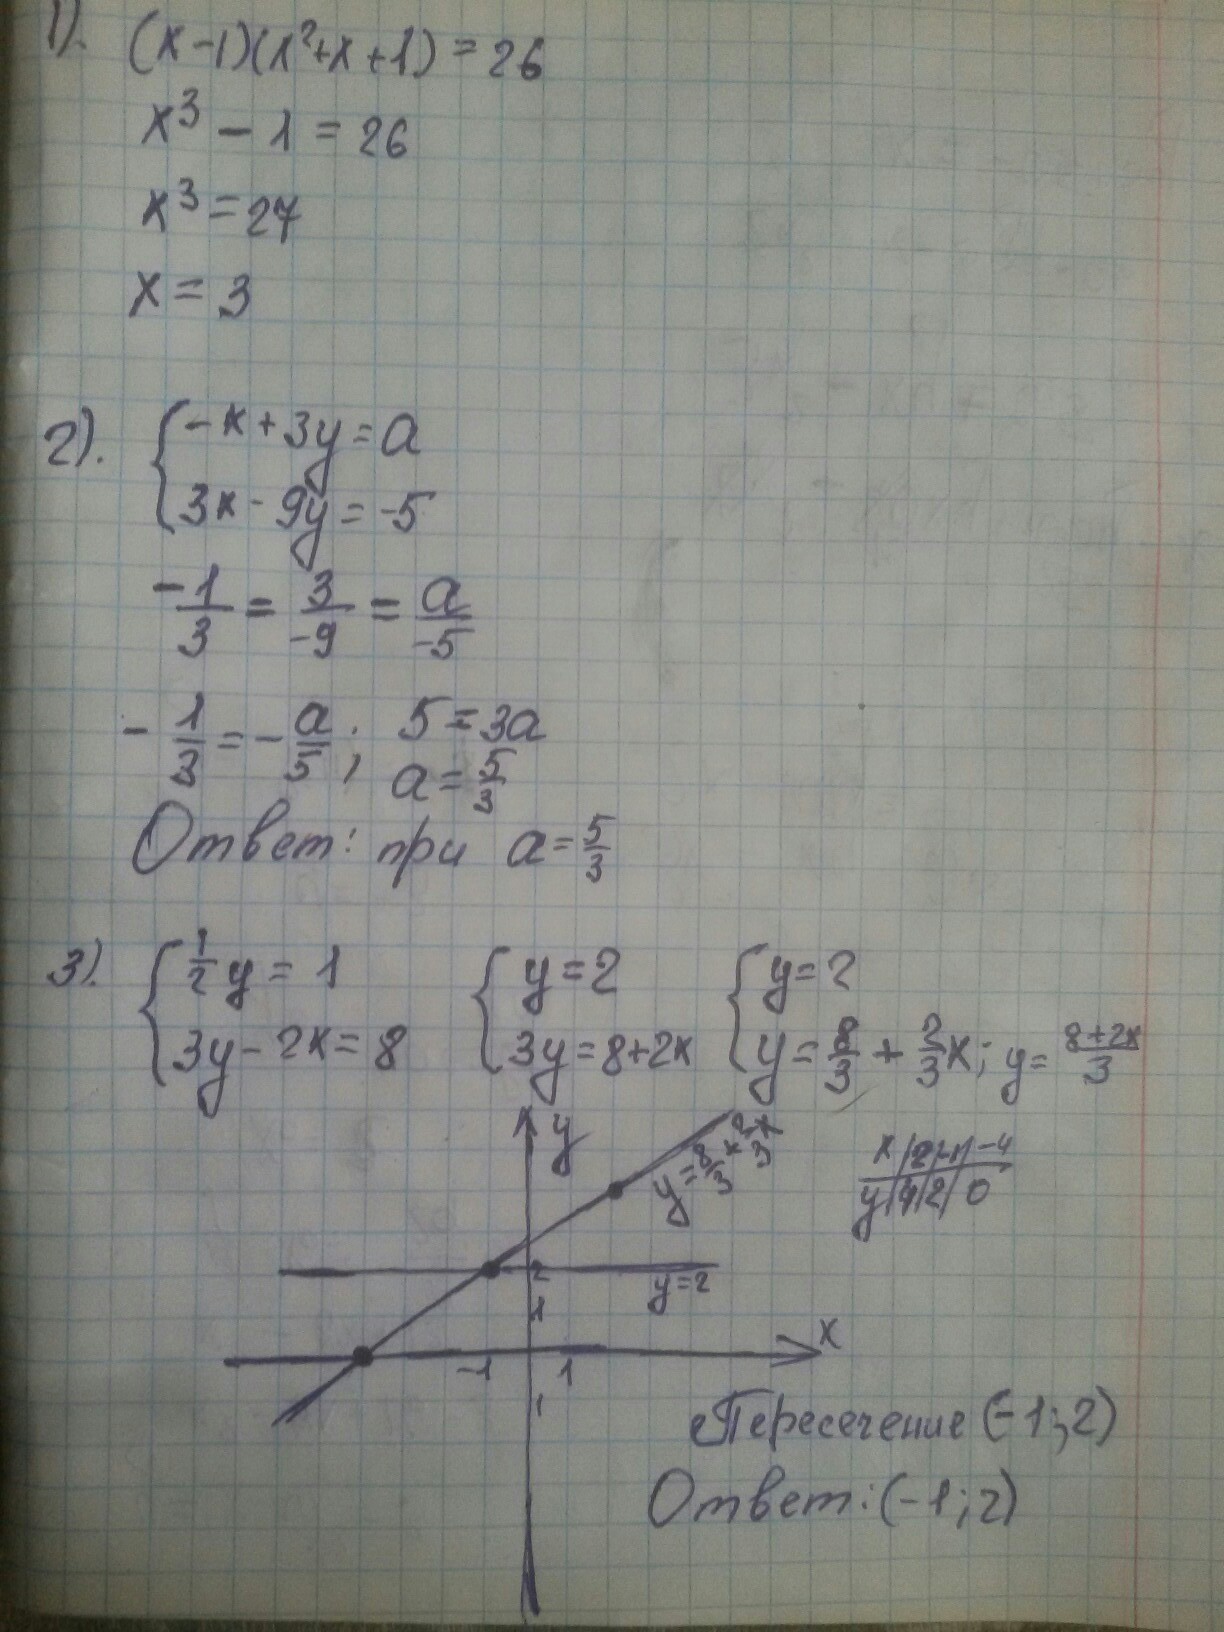 1). (x-1)(x²+x+1) = 26
x³ - 1 = 26
x³ = 27
x = 3
2). { -x + 3y = a
3x - 9y = -5
-1/3 = 3/-9 = a/-5
- 1/3 = - a/5 ; 5 = 3a
a = 5/3
Ответ: при a = 5/3
3). { 1/2 y = 1 { y = 2 { y = 2
3y - 2x = 8 3y = 8 + 2x y = 8/3 + 2/3 x; y = 8+2x/3
y
y = 8/3 + 2/3 x
x | 2 | -1 | -4
y | 4 | 2 | 0
2
y = 2
1
x
-1 1
Пересечение (-1; 2)
Ответ: (-1; 2)